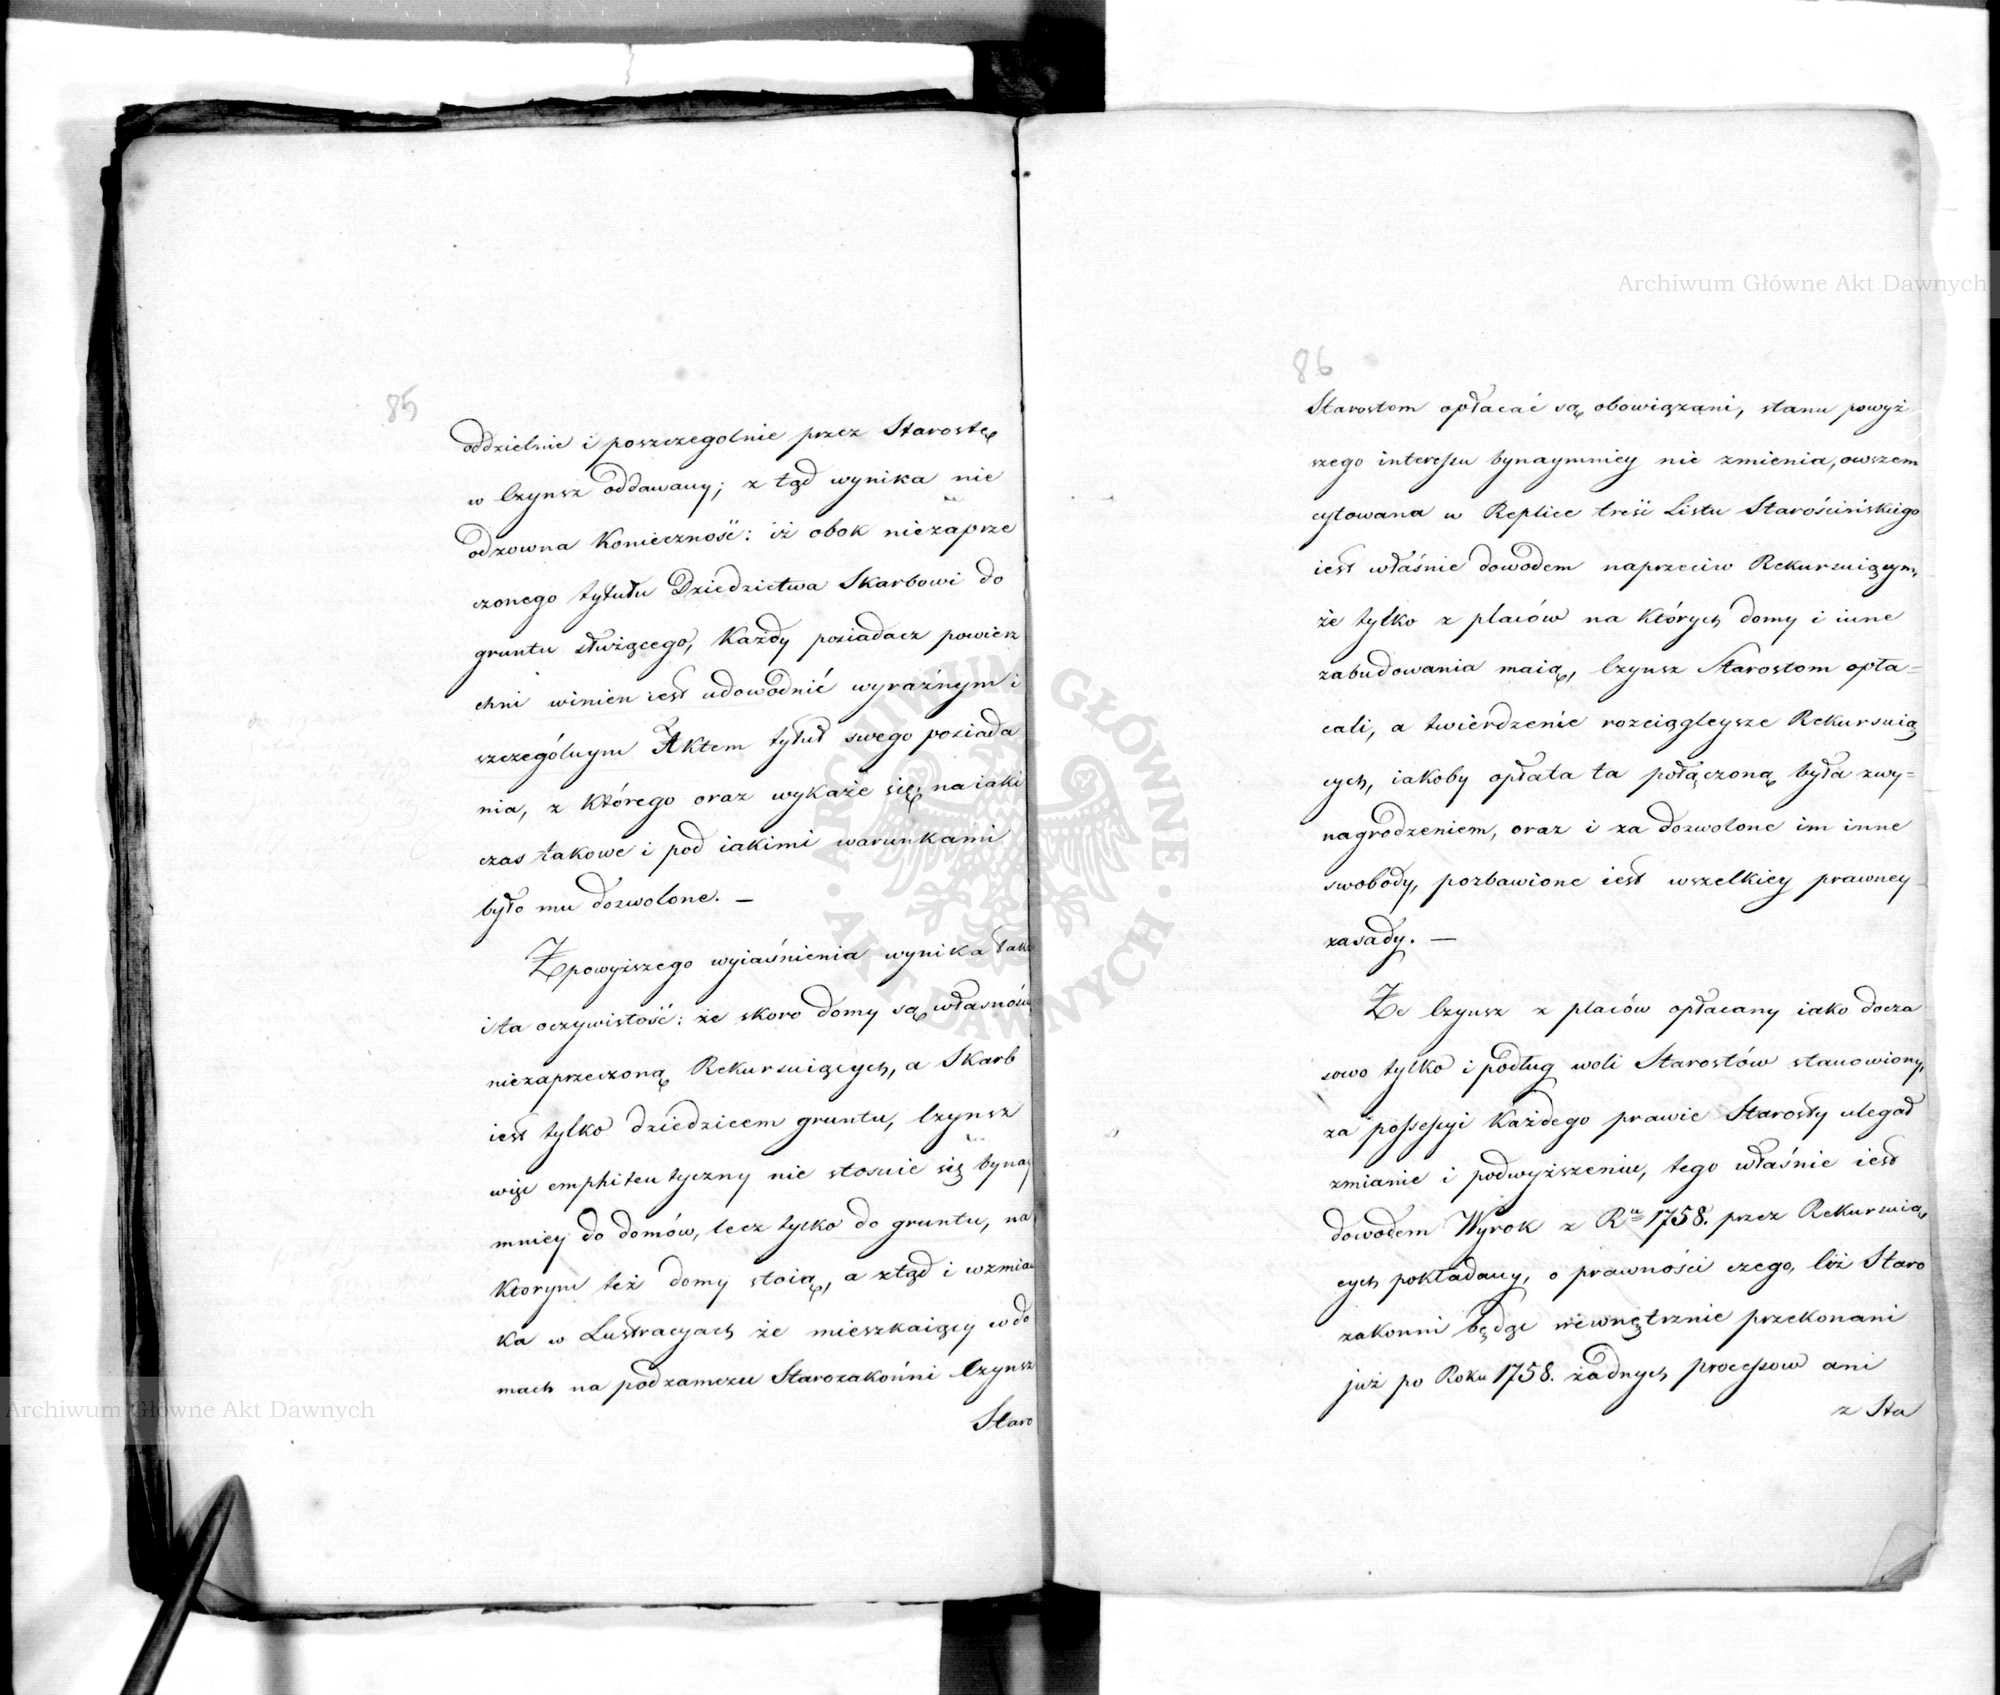 85
oddzielnie i poszczegolnie przez Starostę
w Czynsz oddawany; z tąd wynika nie
odzowna Konieczność: iż obok niezaprze
czonego tytułu Dziedzictwa Skarbowi do
gruntu służącego, Każdy posiadacz powierz
chni winien iest udowodnić wyraźnym i
szczególnym Aktem tytuł swego posiada
nia, z którego oraz wykaże się, na iaki
czas takowe i pod iakimi warunkami
było mu dozwolone. —
Z powyższego wyiaśnienia wynika także
i ta oczywistość: że skoro domy są własnością
niezaprzeczoną Rekursuiących, a Skarb
iest tylko dziedzicem gruntu, Czynsz
więc emphiteutyczny nie stosuie się bynay
mniey do domów, lecz tylko do gruntu, na
Ktorym też domy stoią, a ztąd i wzmian
ka w Lustracyach że mieszkaiący w do
mach na podzamczu Starozakonni Czynsz
Staro
86
Starostom opłacać są obowiązani, stanu powyż
szego interessu bynaymniey nie zmienia, owszem
cytowana w Replice treść Listu Starościńskiego
iest właśnie dowodem naprzeciw Rekursuiącym,
że tylko z placów na których domy i inne
zabudowania maią, Czynsz Starostom opła=
cali, a twierdzenie rozciągleysze Rekursuią
cych, iakoby opłata ta połączoną była z wy=
nagrodzeniem, oraz i za dozwolone im inne
swobody, pozbawione iest wszelkiey prawney
zasady. —
Że Czynsz z placów opłacany iako docza
sowo tylko i podług woli Starostów stanowiony,
za possessyi Każdego prawie Starosty ulegał
zmianie i podwyższeniu, tego właśnie iest
dowodem Wyrok z Ru 1758. przez Rekursuią
cych pokładany, o prawności czego, Ciż Staro
zakonni będąc wewnętrznie przekonani
już po Roku 1758. żadnych processow ani
z Sta
Archiwum Główne Akt Dawnych
Archiwum Główne Akt Dawnych
ARCHIWUM GŁÓWNE · AKT DAWNYCH ·